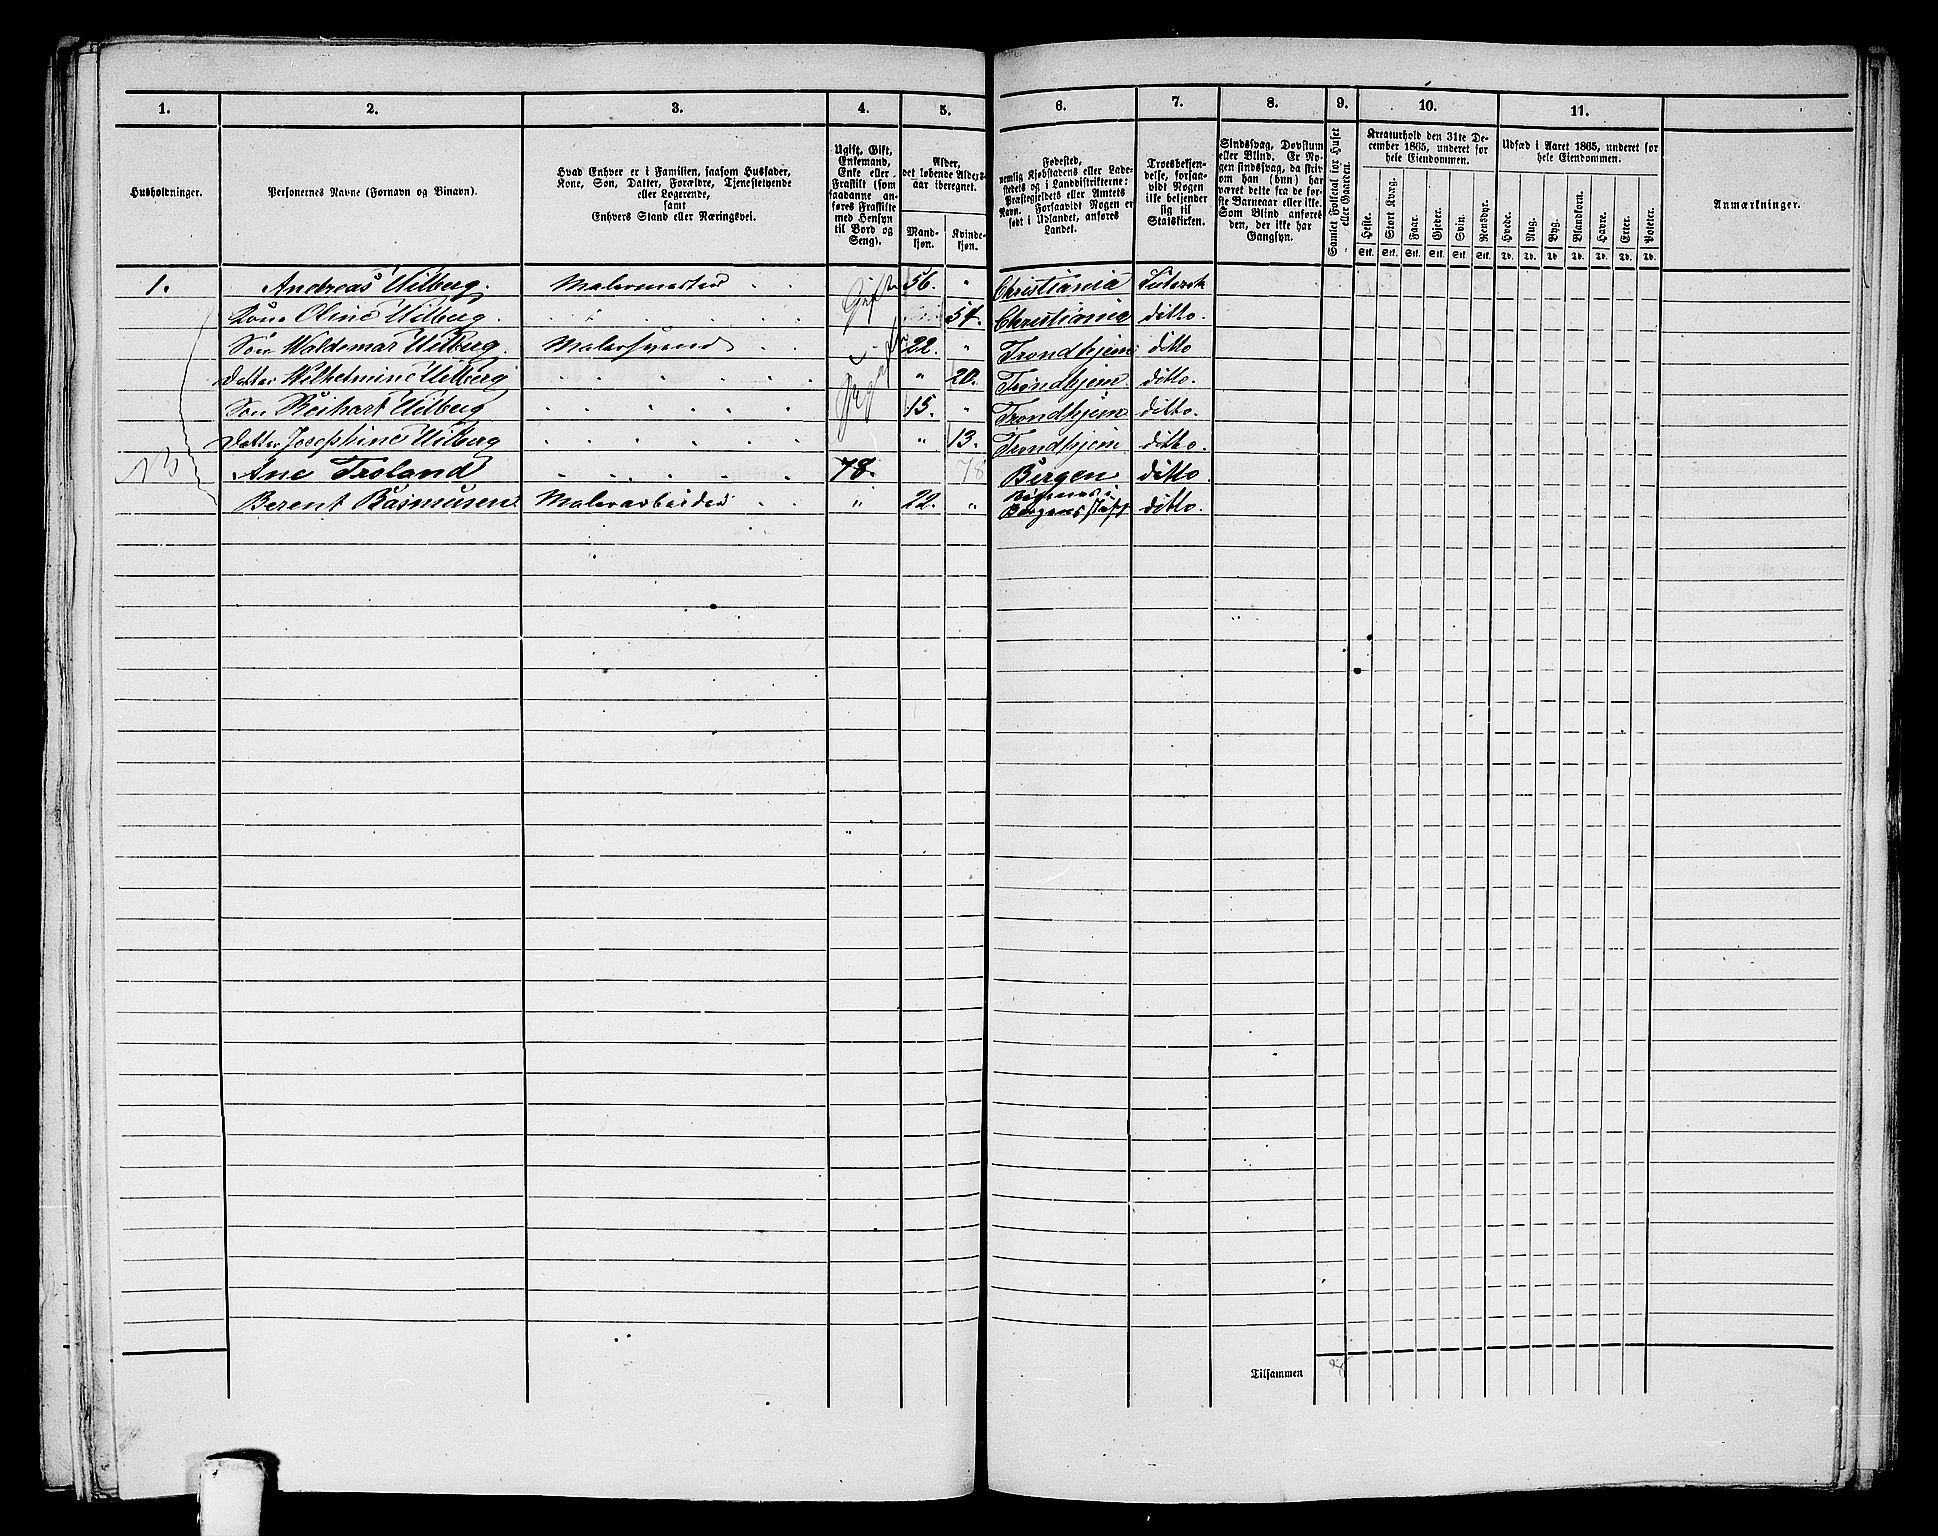 1. 2. 3. 4. 5. 6. 7. 8. 9. 10. 11.
Husholdninger.
Personernes Navne (Fornavn og Binavn).
Hvad Enhver er i Familien, saasom Husfader,
Kone, Søn, Datter, Forældre, Tjenestetyende
eller Logerende,
samt
Enhvers Stand eller Næringsvei.
Ugift, Gift,
Enkemand,
Enke eller
Fraskilt (som
saadanne an-
føres Fraskilte
med Hensyn
til Bord og
Seng).
Alder,
det løbende Alders-
aar iberegnet.
Mand-
kjøn.
Kvinde-
kjøn.
Fødested,
nemlig Kjøbstadens eller Lade-
stedets og i Landdistrikterne:
Præstegjeldets eller Amtets
Navn. Forsaavidt Nogen er
født i Udlandet, anføres
Landet.
Troesbekjen-
delse, forsaa-
vidt Nogen
ikke bekjender
sig til
Statskirken.
Sindssvag, Døvstum
eller Blind. Er No-
gen sindssvag, da skriv
om han (hun) har
været dette fra de før-
ste Barneaar eller ikke.
Som Blind anføres
den, der ikke har
Gangsyn.
Samlet Folketal for Huset
eller Gaarden.
Kreaturhold den 31te De-
cember 1865, underet for
hele Eiendommen.
Heste. Stort Kvæg. Faar. Gjeder. Svin. Rensdyr.
Stk. Stk. Stk. Stk. Stk. Stk.
Udsæd i Aaret 1865, underet for
hele Eiendommen.
Hvede. Rug. Byg. Blandkorn. Havre. Erter. Poteter.
Td. Td. Td. Td. Td. Td. Td.
Anmærkninger.
1. Andreas Wilberg. Malermester . . Gift 56. " Christiania
Kone Oline Wilberg. . . . . 54. Christiania ditto.
Søn Waldemar Wilberg. Malersvend . . 22. " Trondhjem ditto
Datter Wilhelmine Wilberg " 20. Trondhjem ditto.
Søn Wilberg 15. " Trondhjem ditto.
Datter Josephine Wilberg " 13. Trondhjem ditto.
Ane Troland 78. 78 Bergen ditto.
Berent Rasmusen Malerarbeider . . " 22. " ditto.
Tilsammen